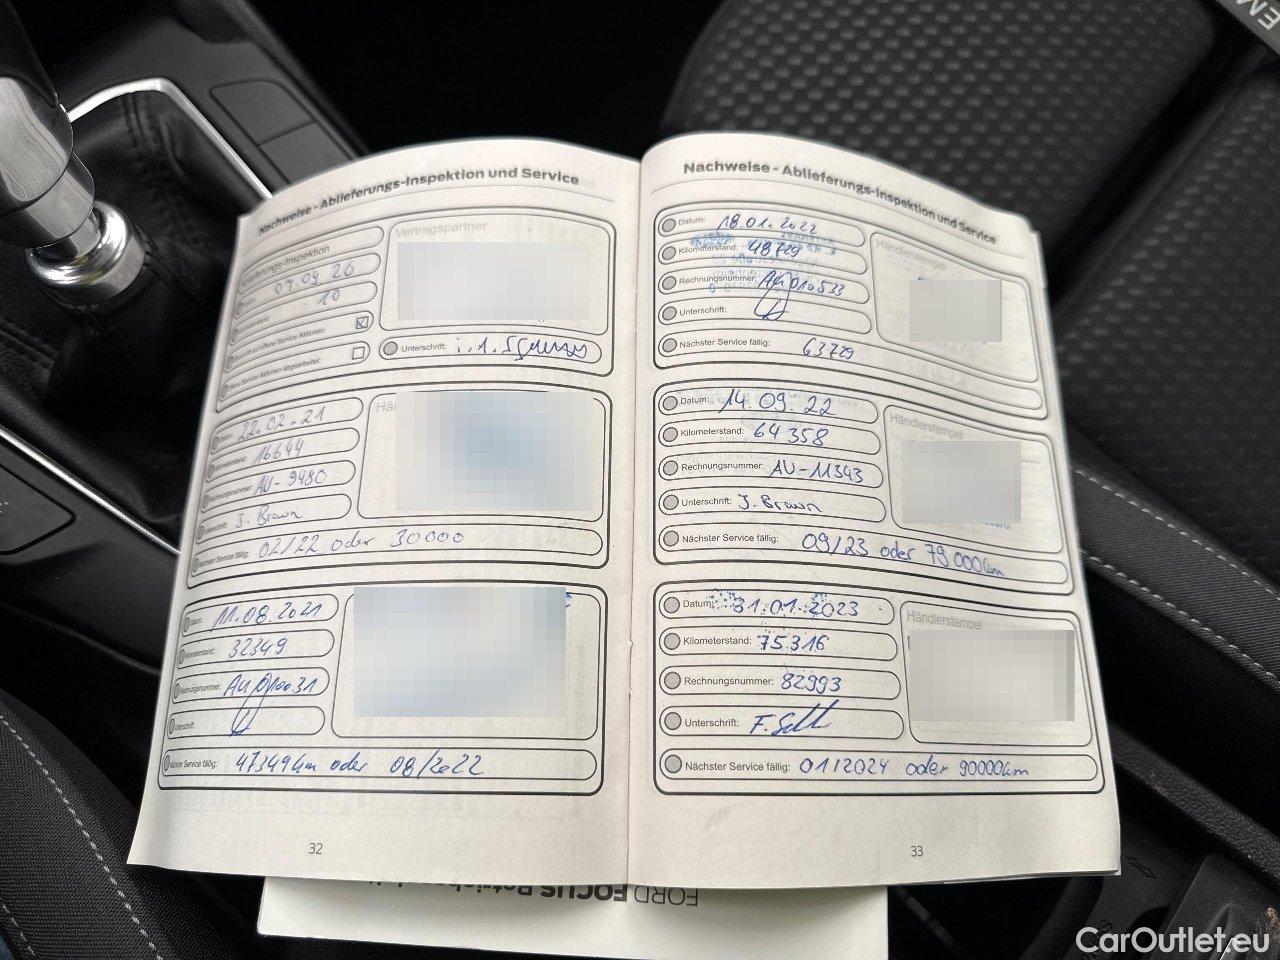 Nachweise - Ablieferungs-Inspektion und Service
Ablieferungs-Inspektion
Vertragspartner
10
Unterschrift:
22.02.21
16644
AU-9480
J. Brown
Nächster Service fällig: 02/22 oder 30000
Datum: 11.08.2021
Kilometerstand: 32349
Rechnungsnummer:
Unterschrift:
Nächster Service fällig: 47349km oder 08/2022
32
Nachweise - Ablieferungs-Inspektion und Service
Datum: 18.01.2022
Kilometerstand: 48729
Händlerstempel
Rechnungsnummer:
Unterschrift:
Nächster Service fällig: 63729
Datum: 14.09.22
Händlerstempel
Kilometerstand: 64358
Rechnungsnummer: AU-11343
Unterschrift: J. Brown
Nächster Service fällig: 09/23 oder 79000km
Datum: 31.01.2023
Händlerstempel
Kilometerstand: 75316
Rechnungsnummer: 82993
Unterschrift:
Nächster Service fällig: 01/2024 oder 90000km
33
FORD FOCUS
CarOutlet.eu